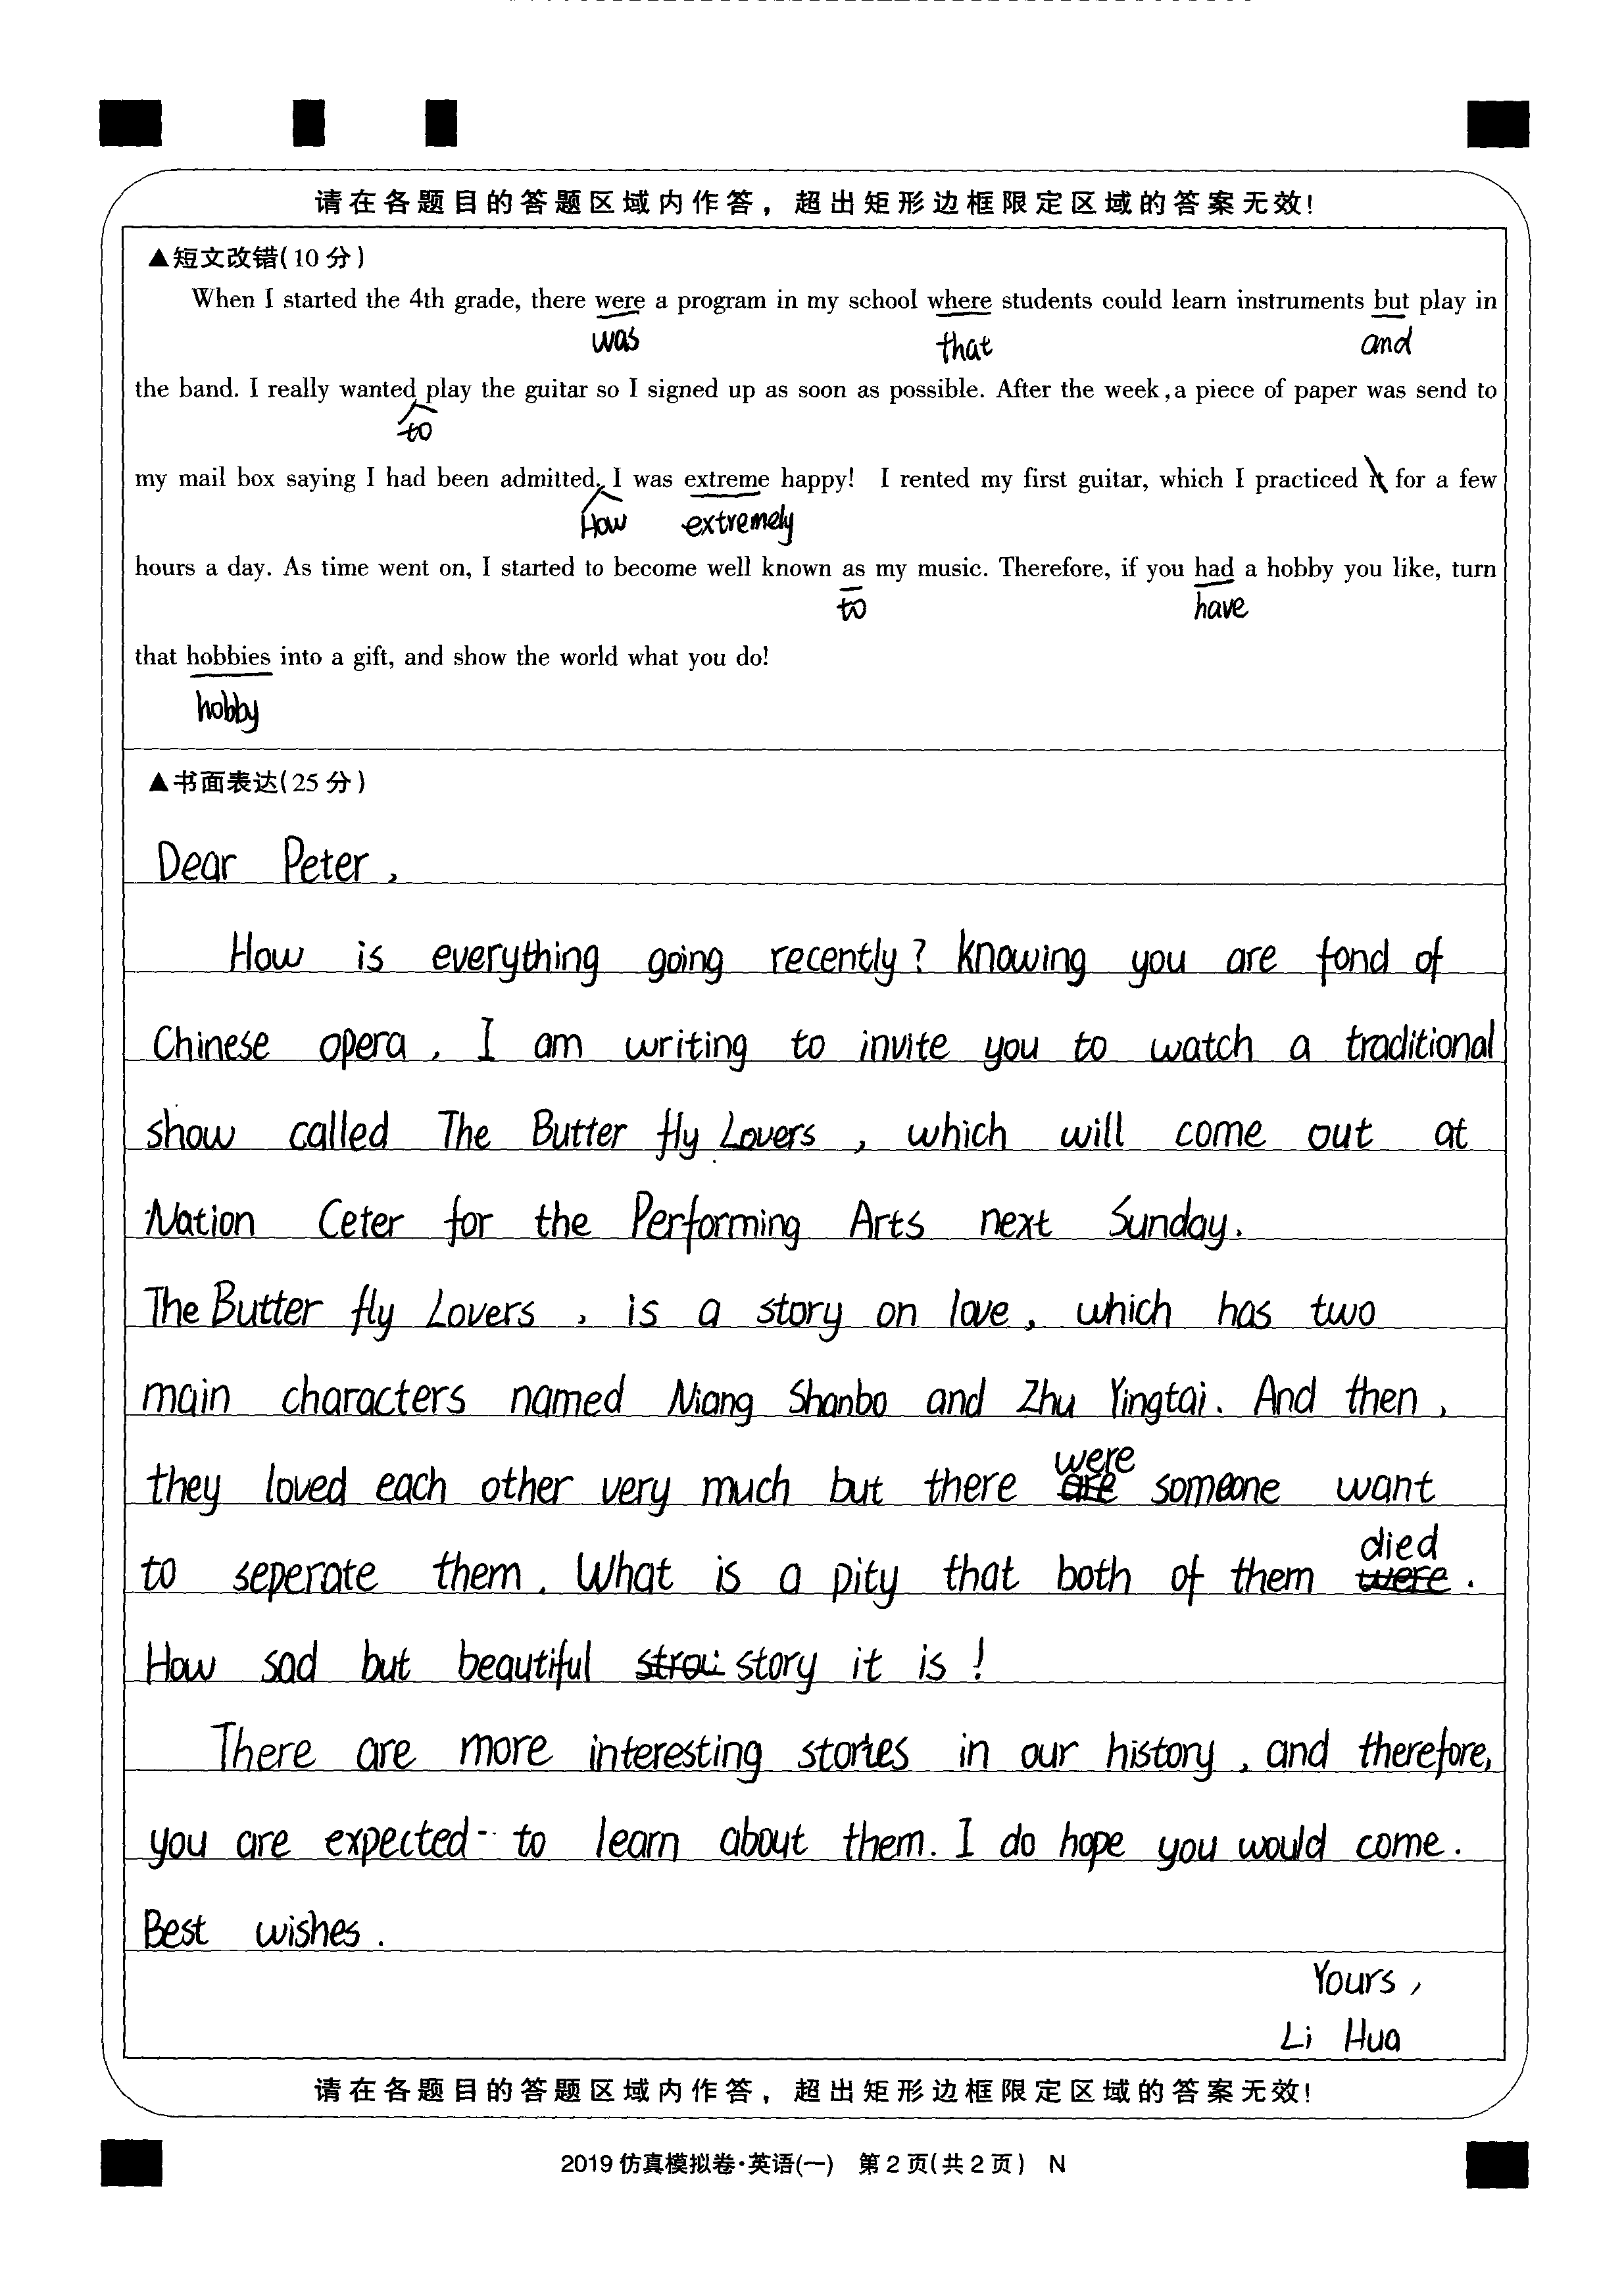 请在各题目的答题区域内作答，超出矩形边框限定区域的答案无效!
▲短文改错(10分)
When I started the 4th grade, there were a program in my school where students could learn instruments but play in
was that and
the band. I really wanted play the guitar so I signed up as soon as possible. After the week,a piece of paper was send to
to
my mail box saying I had been admitted. I was extreme happy! I rented my first guitar, which I practiced it for a few
How extremely
hours a day. As time went on, I started to become well known as my music. Therefore, if you had a hobby you like, turn
to have
that hobbies into a gift, and show the world what you do!
hobby
▲书面表达(25分)
Dear Peter,
How is everything going recently? Knowing you are fond of
Chinese opera, I am writing to invite you to watch a traditional
show called The Butter fly Lovers, which will come out at
Nation Ceter for the Performing Arts next Sunday.
The Butter fly Lovers, is a story on love, which has two
main characters named Niang Shanbo and Zhu Yingtai. And then,
were
they loved each other very much but there are someone want
died
to seperate them. What is a pity that both of them were.
How sad but beautiful story it is!
There are more interesting stories in our history, and therefore,
you are expected to learn about them. I do hope you would come.
Best wishes.
Yours,
Li Hua
请在各题目的答题区域内作答，超出矩形边框限定区域的答案无效!
2019仿真模拟卷·英语(一) 第2页(共2页) N